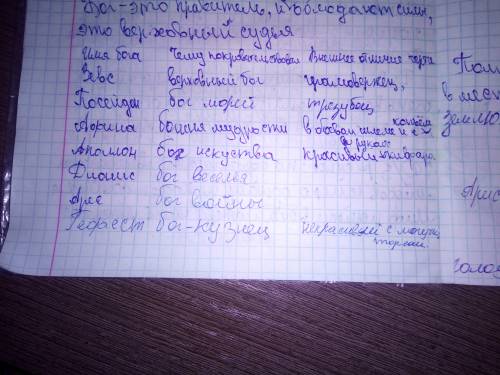 Бог-это правитель, и обладают силы,
это верховный судья
Имя бога Чему покровительствовал Внешнее отличие черта
Зевс верховный бог громовержец,
Посейдон бог морей трезубец
Афина богиня мудрости в боевом шлеме и с копьём в руках
Аполлон бог искуства красивый кифара
Дионис бог веселья
Арес бог войны
Гефест бог-кузнец некрасивый с мощным торсом
в мест
землю
Арис
голов